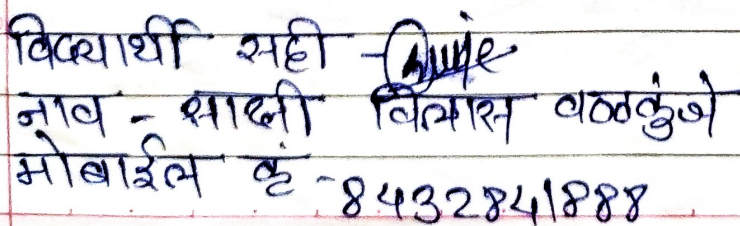 विद्यार्थी सही -
नाव - साक्षी विलास वळकुंजे
मोबाईल क्रं - 8432841888